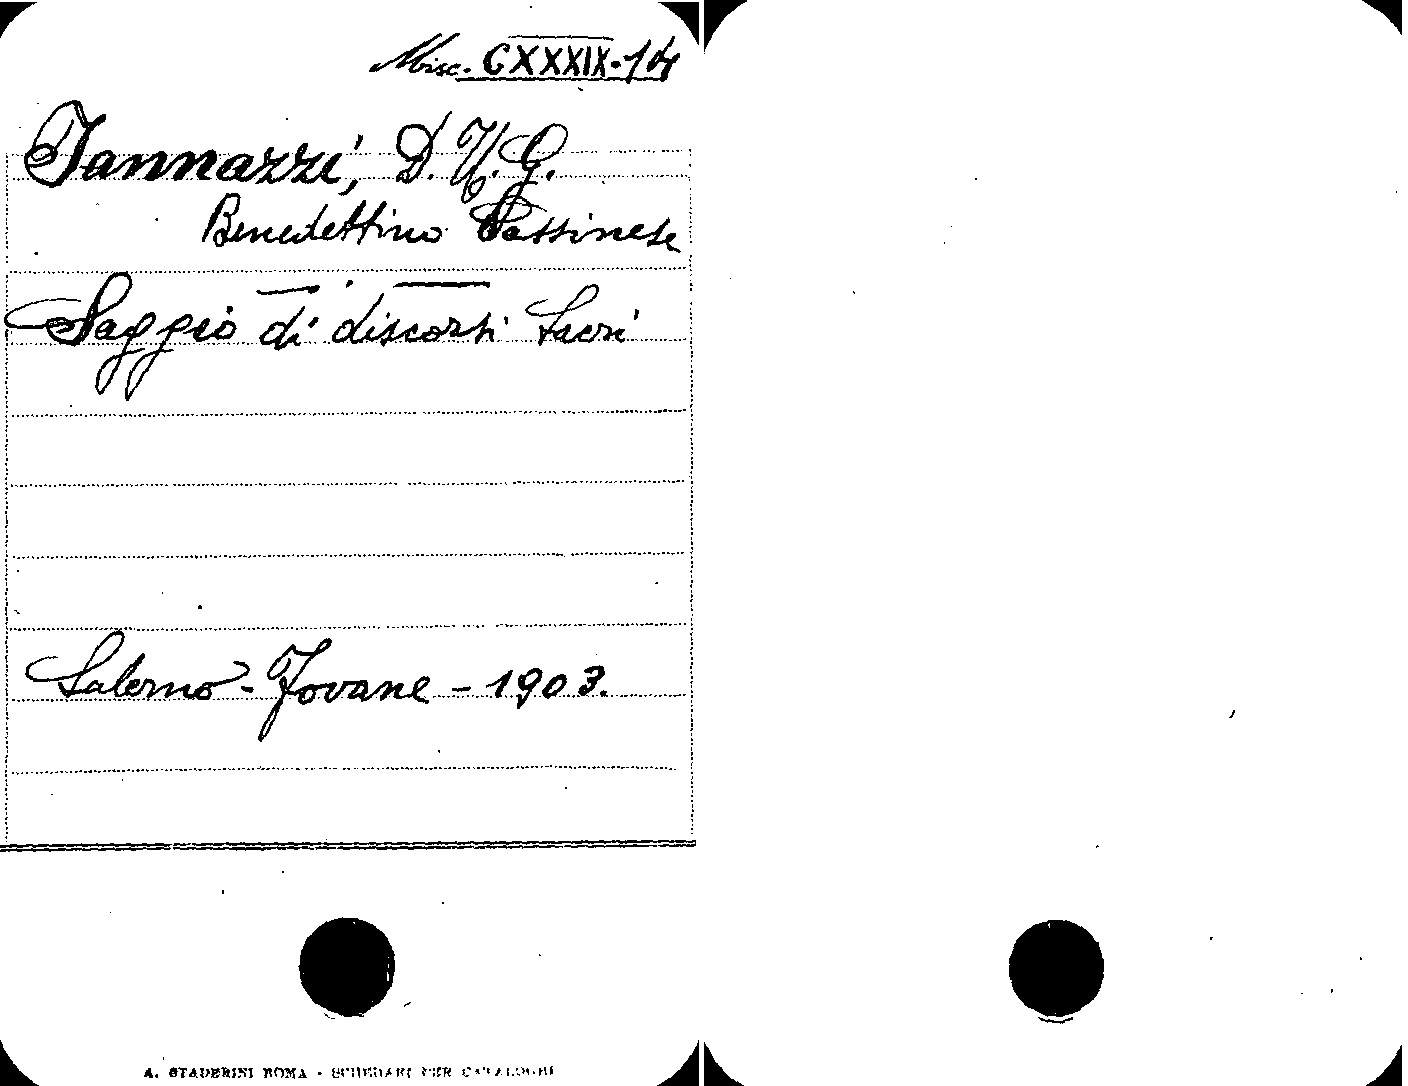 Misc. CXXXIX-14
Jannazzi, D. U. G.
Benedettino Cassinese
Saggio di discorsi Sacri
Salerno - Jovane - 1903.
A. STADERINI ROMA - SCHEDARI PER CATALOGHI